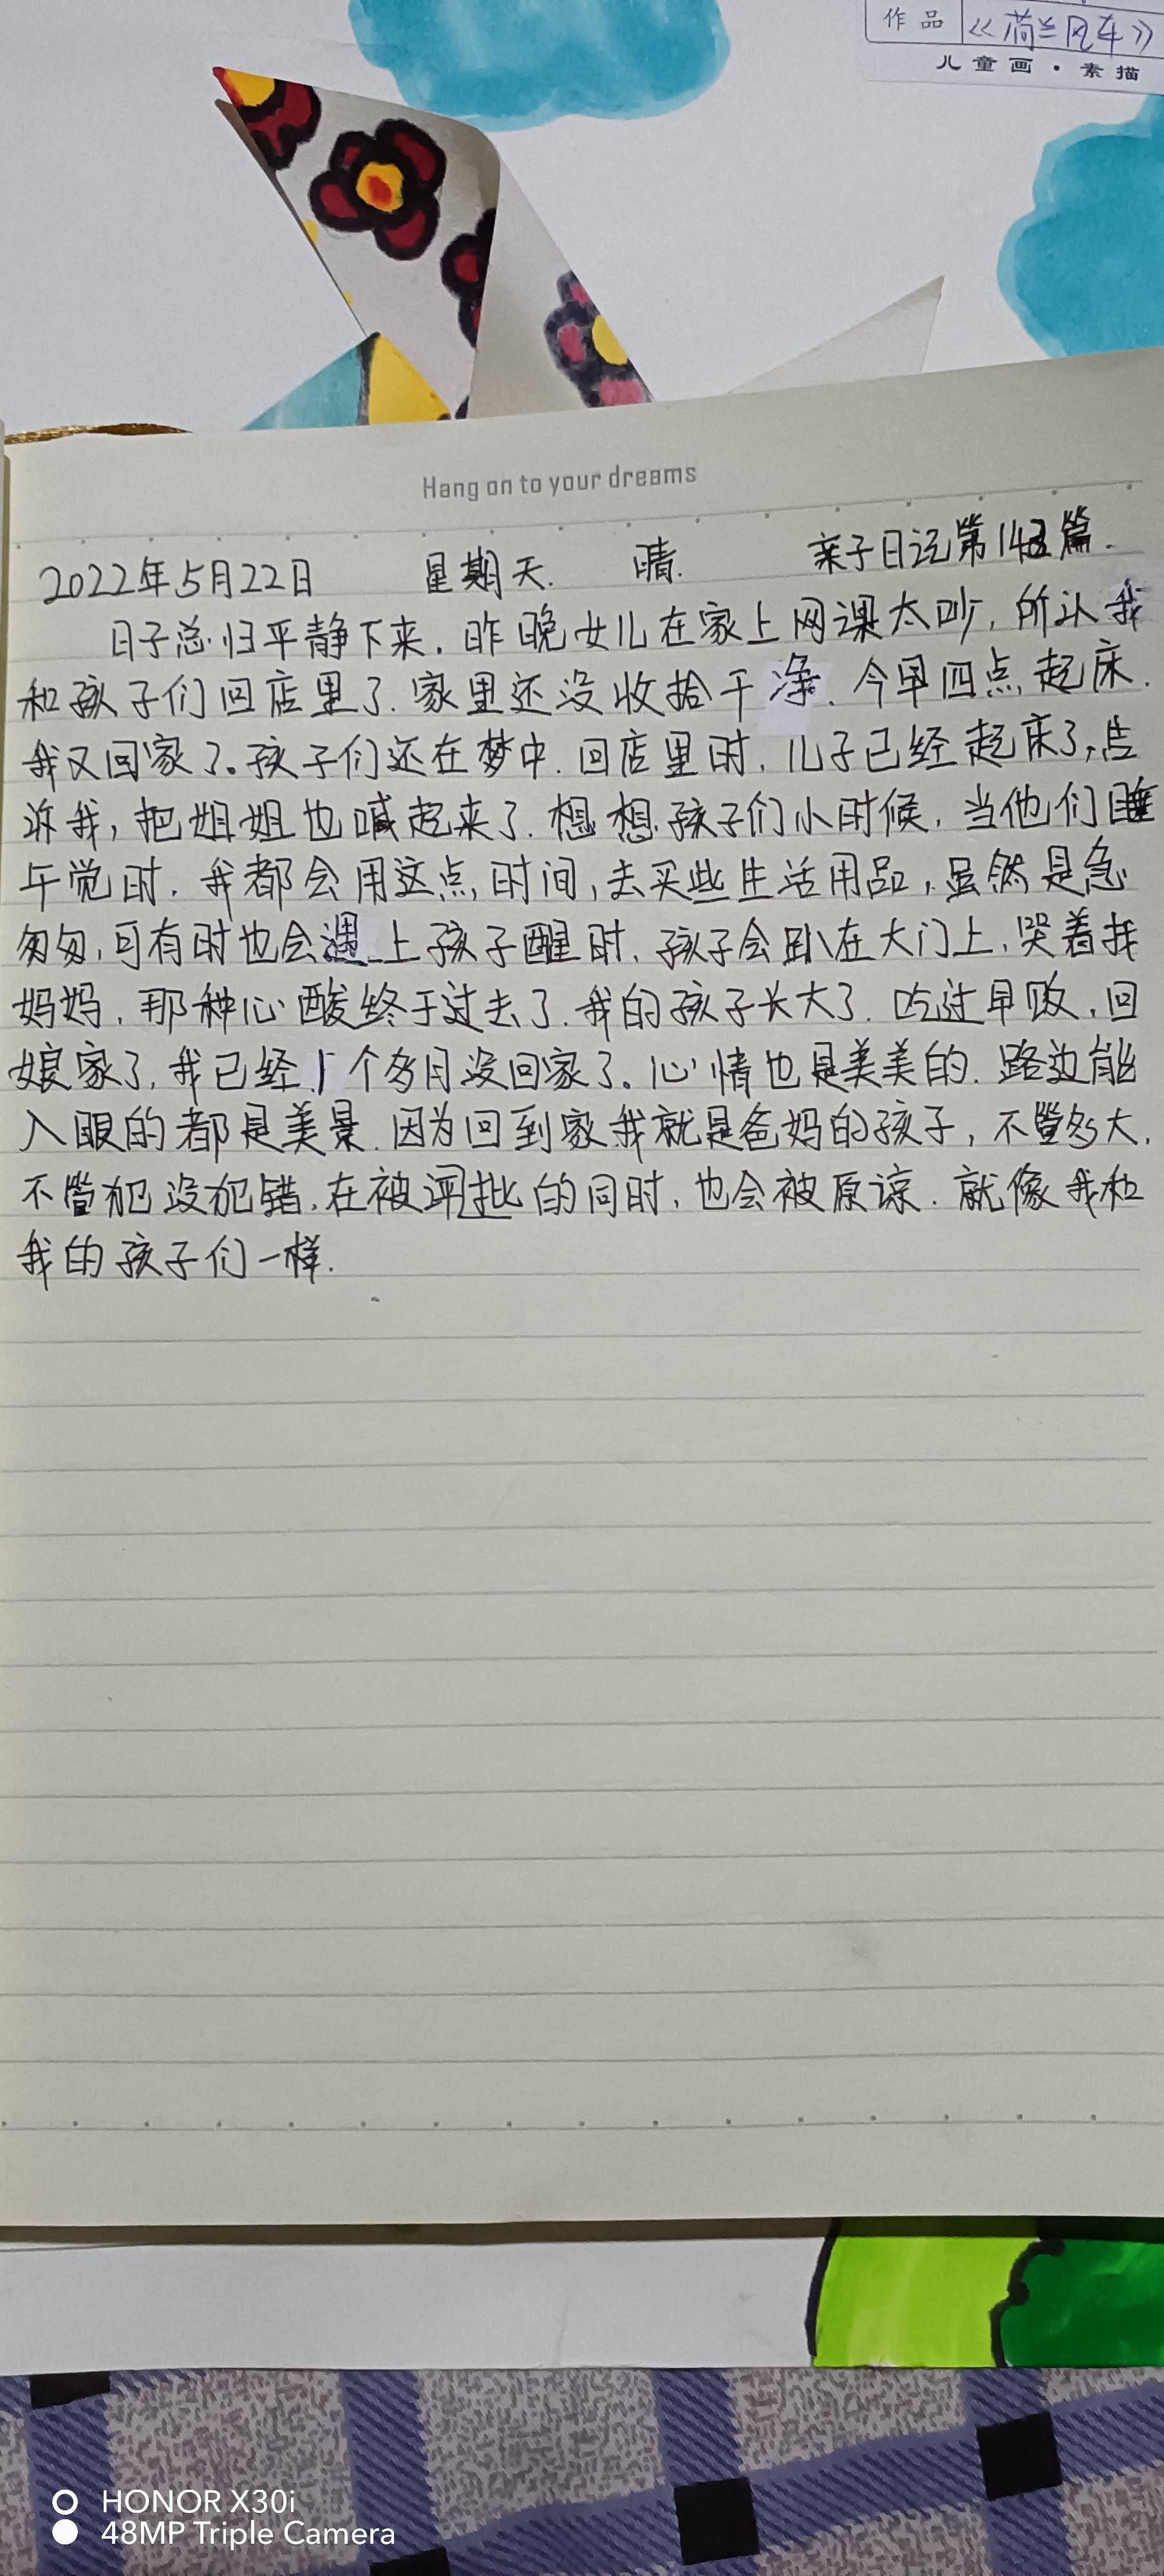 作品 《荷兰风车》
儿童画·素描
Hang on to your dreams
2022年5月22日 星期天. 晴. 亲子日记第143篇.
日子总归平静下来.昨晚女儿在家上网课太吵,所以我
和孩子们回店里了.家里还没收拾干净.今早四点起床.
我又回家了。孩子们还在梦中.回店里时,儿子已经起床了,告
诉我,把姐姐也喊起来了.想想孩子们小时候,当他们睡
午觉时.我都会用这点时间,去买些生活用品,虽然是急
匆匆,可有时也会遇上孩子醒时.孩子会趴在大门上,哭着找
妈妈,那种心酸终于过去了.我的孩子长大了.吃过早饭,回
娘家了,我已经1个多月没回家了。心情也是美美的.路边能
入眼的都是美景.因为回到家我就是爸妈的孩子,不管多大,
不管犯没犯错,在被评批的同时,也会被原谅.就像我和
我的孩子们一样.
HONOR X30i
48MP Triple Camera